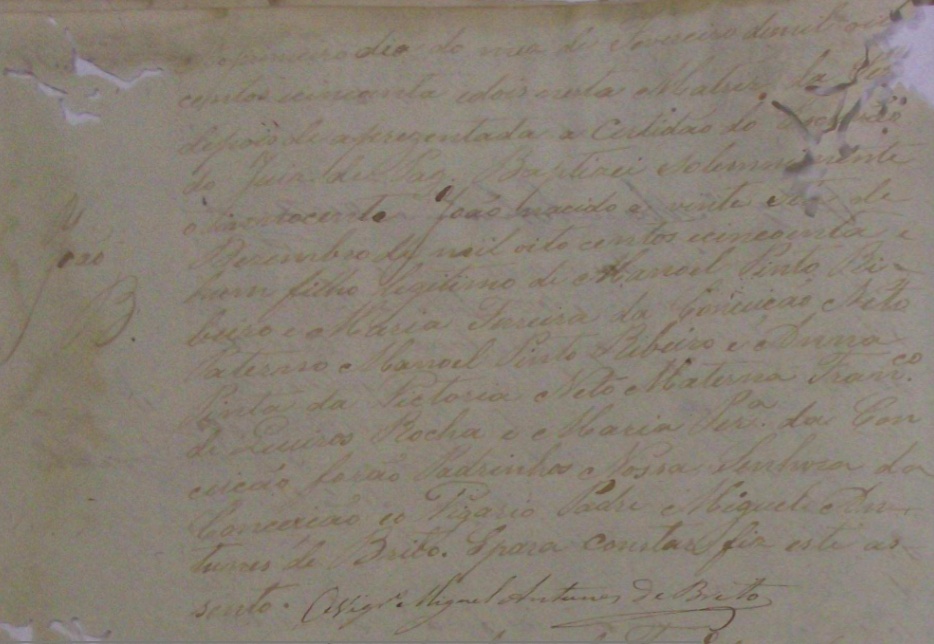 Ao primeiro dia do mez de Fevereiro de mil oito
centos e cincoenta e dois nesta Matriz da
depois de aprezentada a Certidão do Escrivão
do Juiz de Paz, Baptizei Solemnemente
o innocente João nacido a vinte e de
Dezembro de mil oito centos e cincoenta e
hum filho legitimo de Manoel Pinto Ri-
beiro e Maria Ferreira da Conceicão Neto
Paterno Manoel Pinto Ribeiro e Anna
Pinta da Victoria Neto Materna Fran.co
de Queiros Rocha e Maria Fer.a da Con
ceicão forão Padrinhos Nossa Senhora da
Conceicão e o Vigario Padre Miguel An-
tunes de Brito. E para constar fiz este as-
sento. O Vigr.o Miguel Antunes de Brito
João
B.